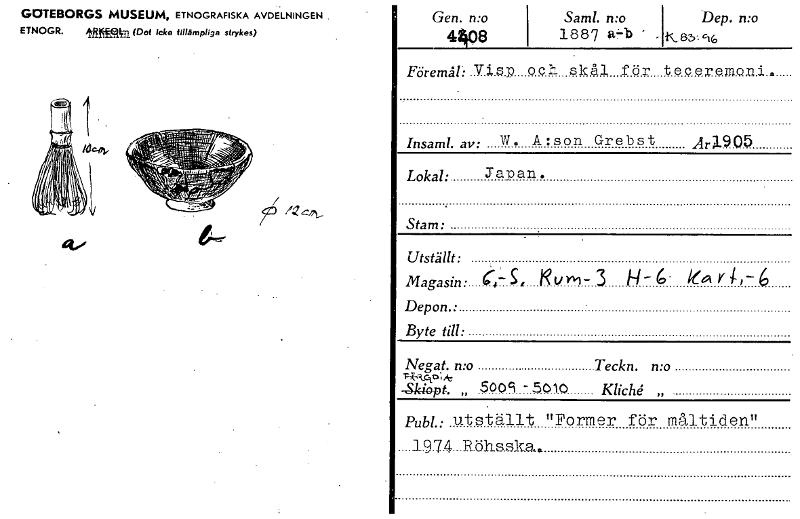 GÖTEBORGS MUSEUM, ETNOGRAFISKA AVDELNINGEN
ETNOGR. ARKEOL. (Det icke tillämpliga strykes)
10cm
a
b
ϕ 12cm
Gen. n:o Saml. n:o Dep. n:o
1887 a-b K 83:96
Föremål: Visp och skål för teceremoni.
Insaml. av: W. A:son Grebst År 1905
Lokal: Japan.
Stam:
Utställt:
Magasin: G.-S. Rum-3 H-6 Kart.-6
Depon.:
Byte till:
Negat. n:o Teckn. n:o
FÄRGDIA
Skiopt. „ 5009-5010 Kliché „
Publ.: utställt "Former för måltiden"
1974 Röhsska.